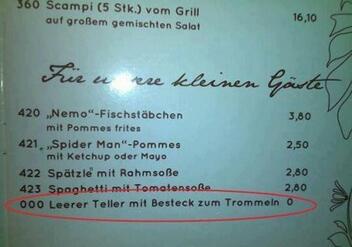 360 Scampi (5 Stk.) vom Grill
auf großem gemischten Salat 16,10
Für unsere kleinen Gäste
420 „Nemo“-Fischstäbchen 3,80
mit Pommes frites
421 „Spider Man“-Pommes 2,50
mit Ketchup oder Mayo
422 Spätzle mit Rahmsoße 2,80
423 Spaghetti mit Tomatensoße 2,80
000 Leerer Teller mit Besteck zum Trommeln 0